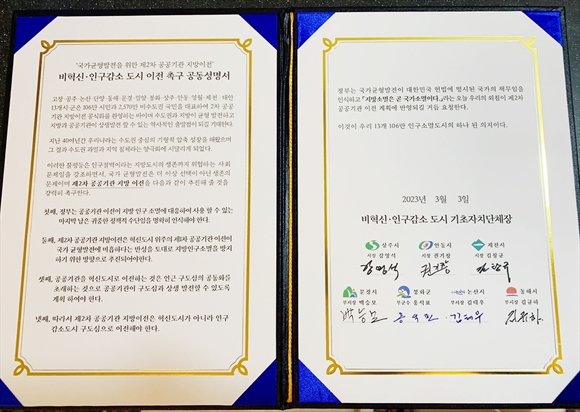 '국가균형발전을 위한 제2차 공공기관 지방이전'
비혁신·인구감소 도시 이전 촉구 공동성명서
고창·공주·논산·단양·동해·문경·밀양·봉화·상주·안동·영월·제천· 태안
13개시·군은 106만 시민과 2,570만 비수도권 국민을 대표하여 2차 공공
기관 지방이전 공식화를 환영하는 바이며 수도권과 지방이 균형 발전하고
지방과 공공기관이 상생발전 할 수 있는 역사적인 출발점이 되길 기대한다.
지난 40여년간 우리나라는 수도권 중심의 기형적 압축 성장을 해왔으며
그 결과 수도권 과밀과 지역 침체라는 양극화에 시달리게 되었다.
이러한 불평등은 인구절벽이라는 지방도시의 생존까지 위협하는 사회
문제임을 강조하면서, 국가 균형발전은 더 이상 선택이 아닌 생존의
문제이며 제2차 공공기관 지방 이전을 다음과 같이 추진해 줄 것을
강력히 촉구한다.
첫째, 정부는 공공기관 이전이 지방 인구 소멸에 대응하여 사용 할 수 있는
마지막 남은 귀중한 정책적 수단임을 명확히 인식해야 한다.
둘째, 제2차 공공기관 지방이전은 혁신도시 위주의 제1차 공공기관 이전이
국가 균형발전에 미흡하다는 반성을 토대로 지방인구소멸을 방지
하기 위한 방향으로 추진되어야한다.
셋째, 공공기관을 혁신도시로 이전하는 것은 인근 구도심의 공동화를
초래하는 것으로 공공기관이 구도심과 상생 발전할 수 있도록
계획 하여야 한다.
넷째, 따라서 제2차 공공기관 지방이전은 혁신도시가 아니라 인구
감소도시 구도심으로 이전해야 한다.
정부는 국가균형발전이 대한민국 헌법에 명시된 국가의 책무임을
인식하고 "지방소멸은 곧 국가소멸이다."라는 오늘 우리의 외침이 제2차
공공기관 이전 계획에 반영되길 거듭 요청한다.
이것이 우리 13개 106만 인구소멸도시의 하나 된 의지이다.
2023년 3월 3일
비혁신·인구감소 도시 기초자치단체장
상주시 안동시 제천시
시장 강영석 시장 권기창 시장 김창규
강영석 권기창 김창규
문경시 봉화군 논산시 동해시
부시장 박승모 부군수 홍석표 부시장 김태우 부시장 김규하
홍석표 김태우